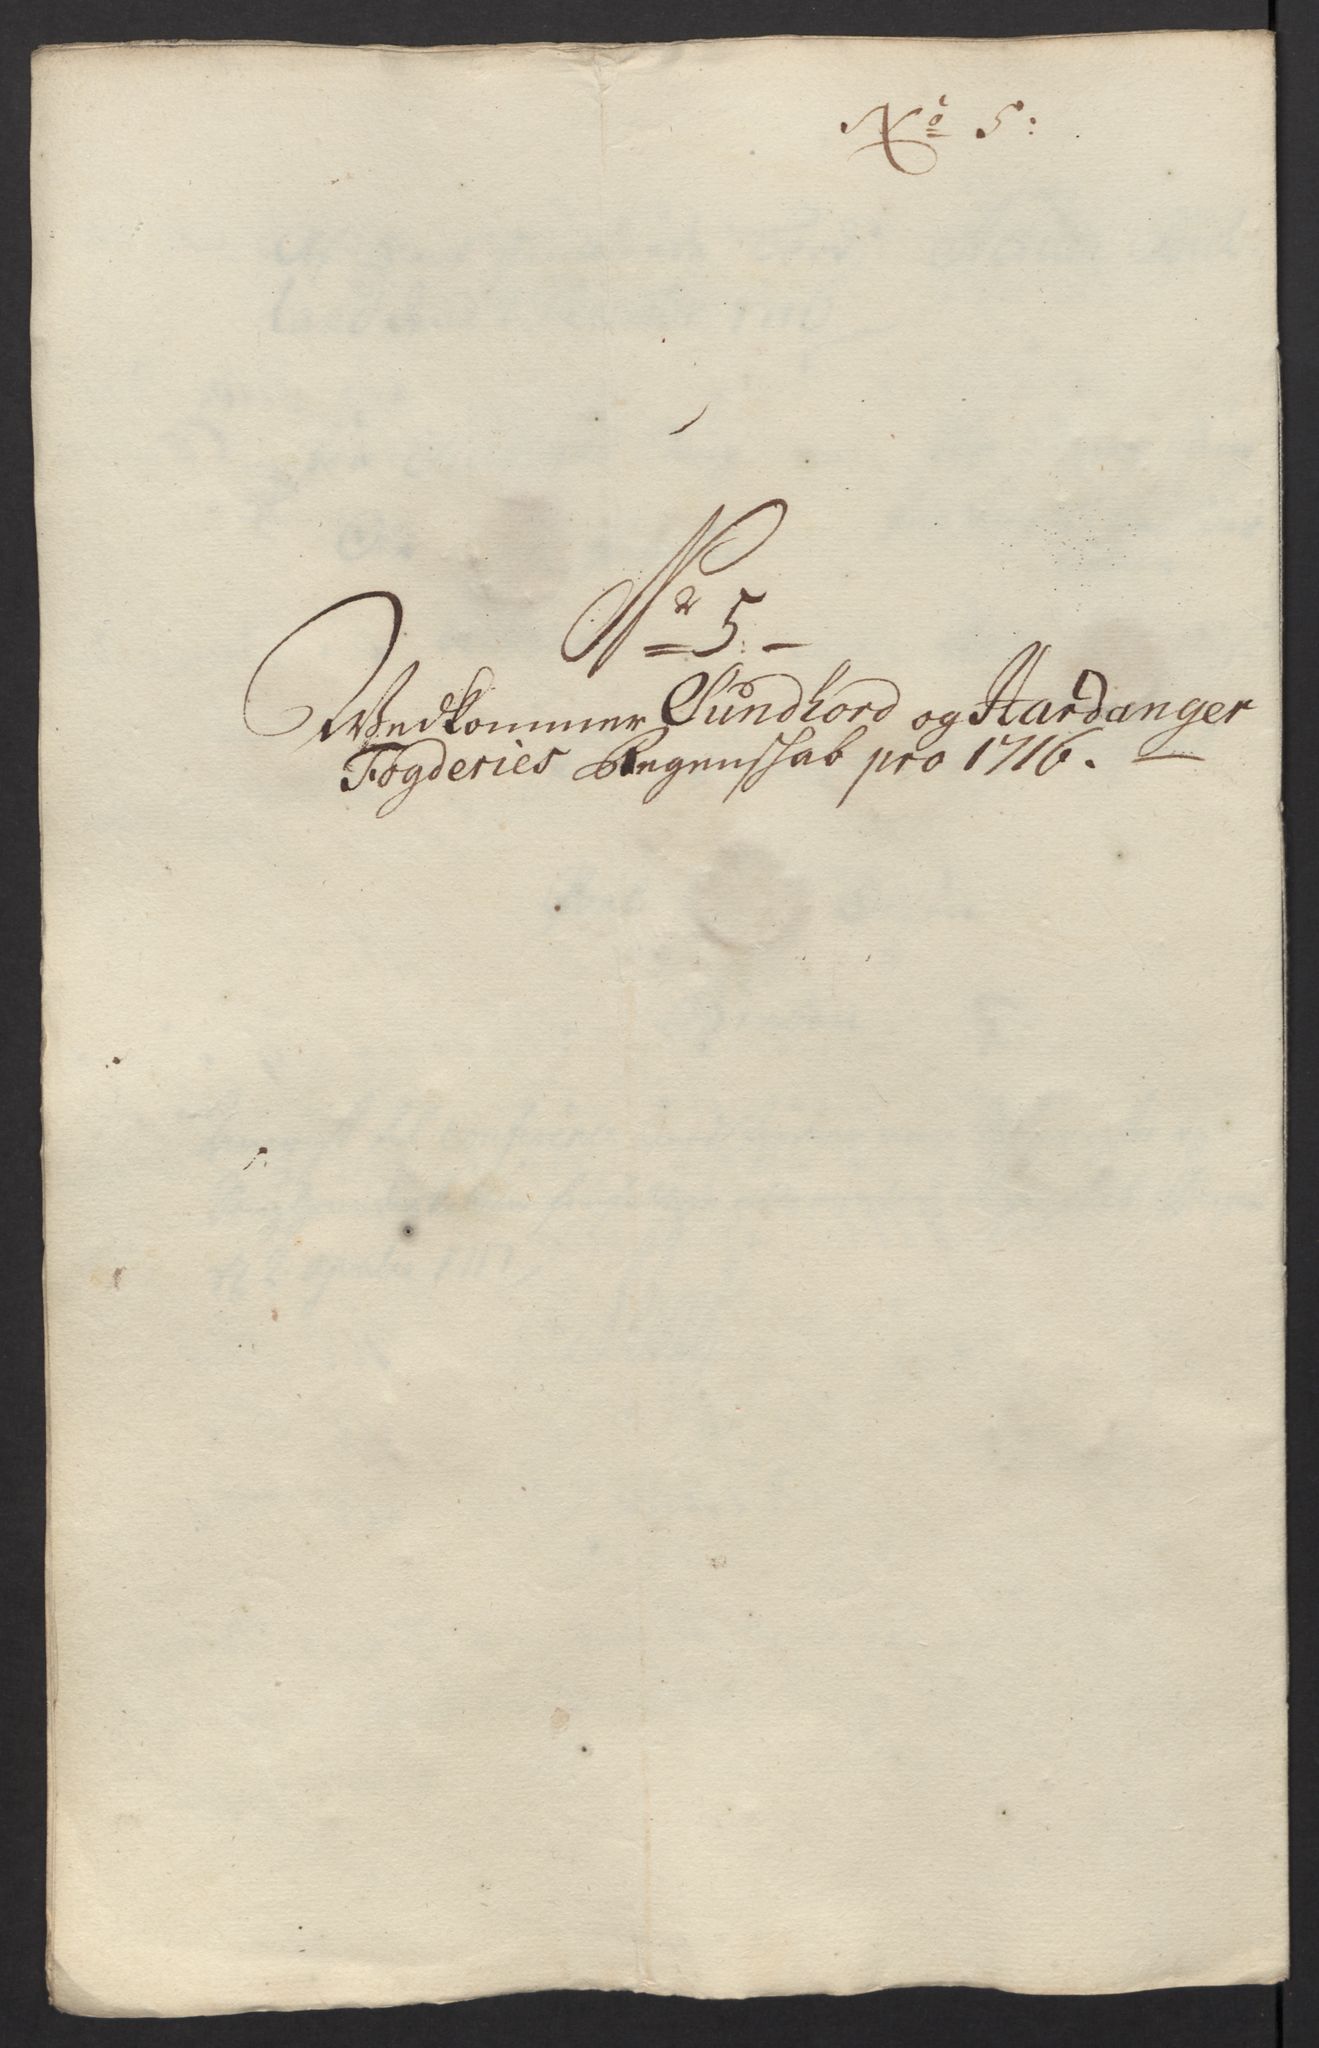 No 5:
Nr 5.
Vedkommer Sundhord og Hardanger
Fogderies Regenskab pro 1716.